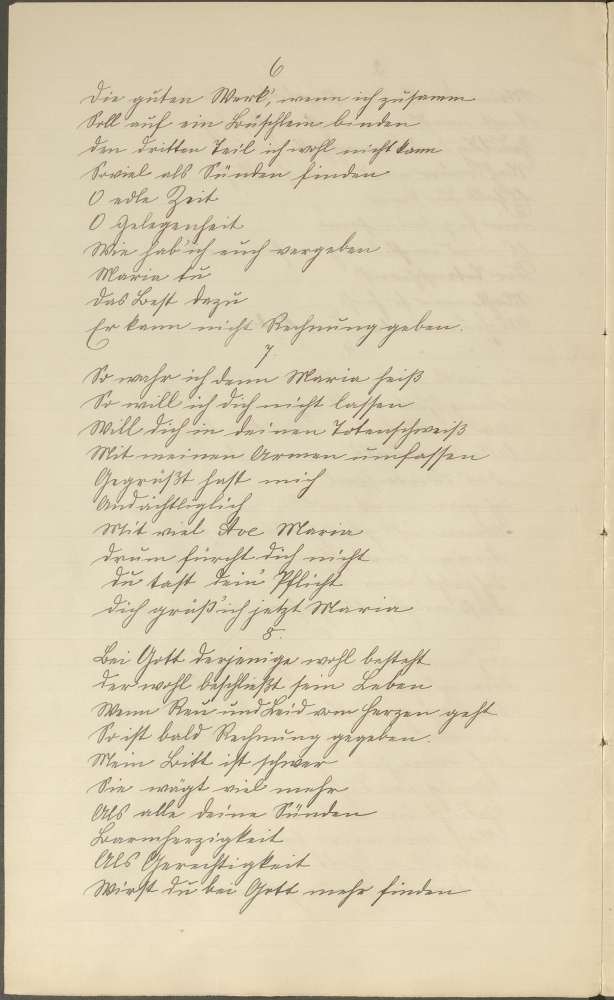 6
Die guten Werk', wenn ich zusamm
Soll auf ein Büschlein binden
Den dritten Teil ich wohl nicht kann
Soviel als Sünden finden
O edle Zeit
O Gelegenheit
Wie hab' ich euch vergeben
Maria tu
Das Best dazu
Er kann nicht Rechnung geben.
7.
So wahr ich denn Maria heiß
So will ich dich nicht lassen
Will dich in deinen Totenschweiß
Mit meinen Armen umfassen
Gegrüßt hast mich
Andächtliglich
Mit viel Ave Maria
Drum fürcht dich nicht
Du tast dein' Pflicht
Dich grüß' ich jetzt Maria
8.
Bei Gott derjenige wohl besteht
Der wohl beschlüßt sein Leben
Wenn Reu und Leid vom Herzen geht
So ist bald Rechnung gegeben.
Mein Bitt ist schwer
Sie wägt viel mehr
Als alle deine Sünden
Barmherzigkeit
Als Gerechtigkeit
Wirst du bei Gott mehr finden